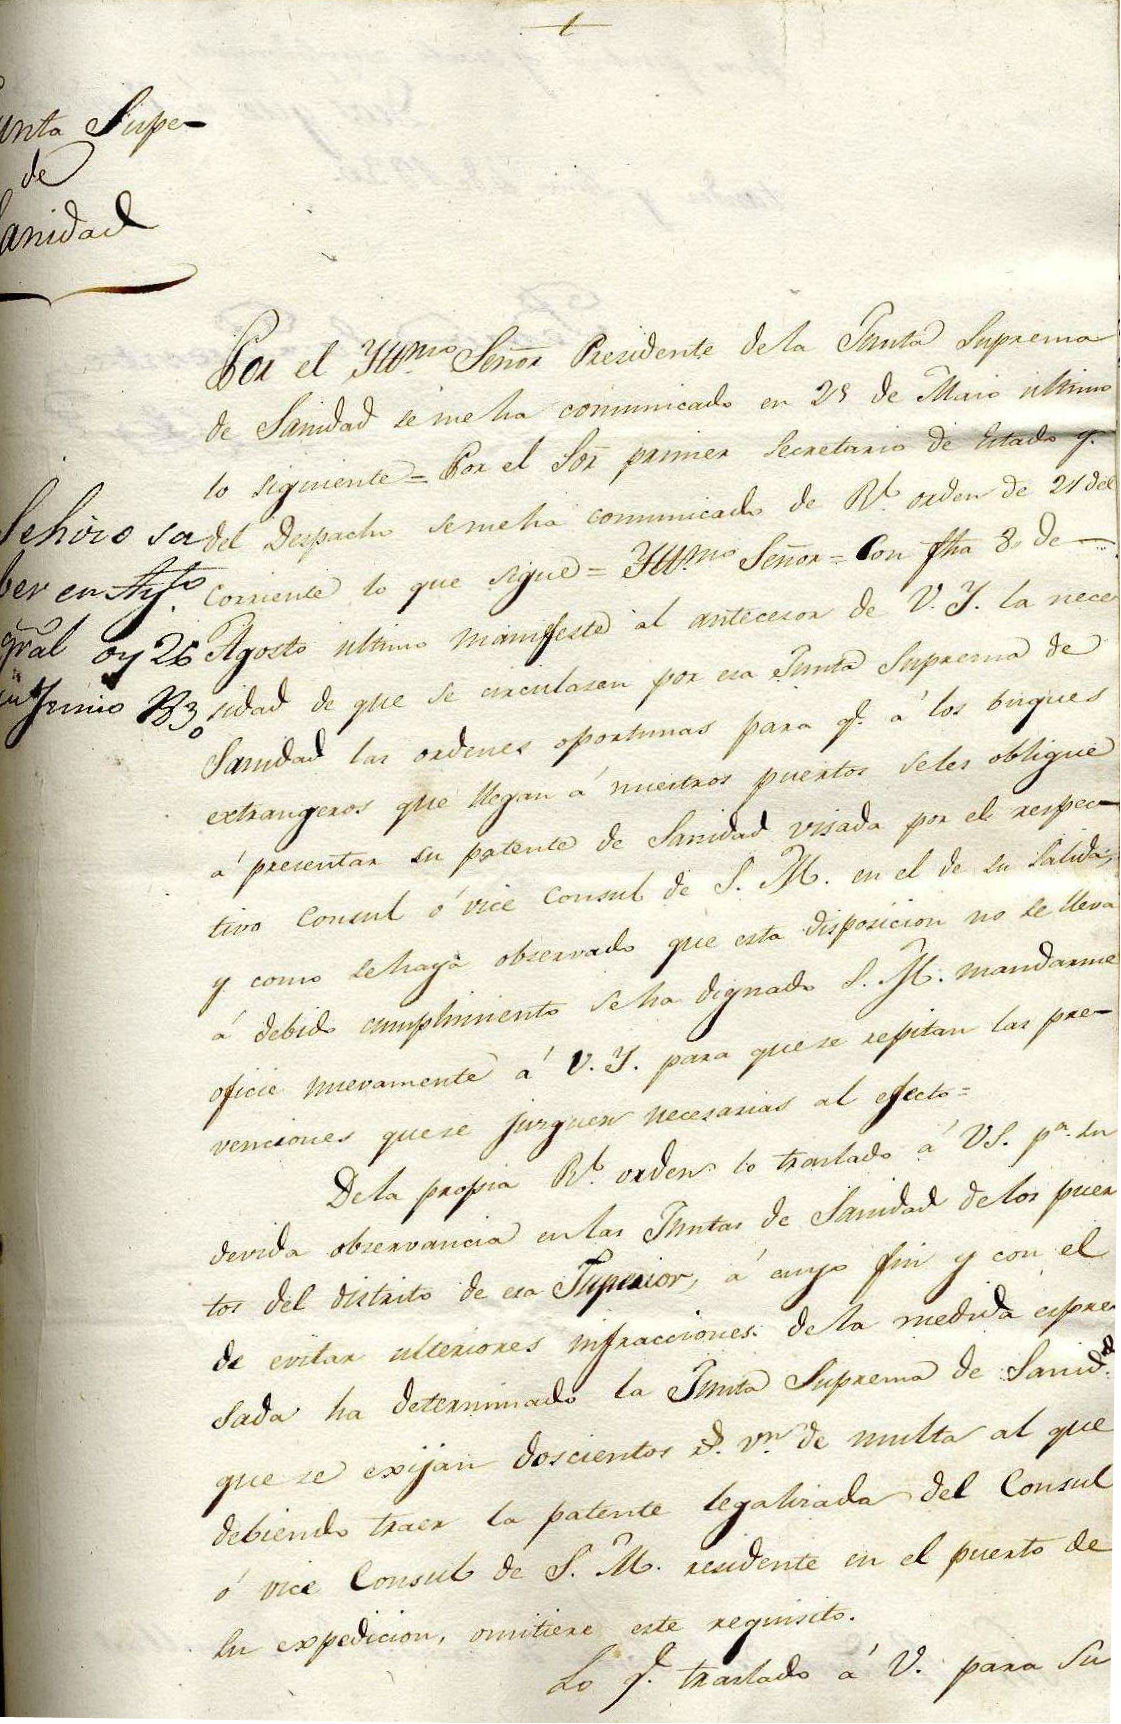 1
unta Supe-
de
anidad
Por el Yllmo. Señor Presidente dela Junta Suprema
de Sanidad se me ha comunicado en 28 de Maio ultimo
lo siguiente = Por el Sor. primer Secretario de Estado y
del Despacho semeha comunicado de Rl. orden de 21 del
corriente lo que sigue = Yllmo. Señor = Con fha 8 de
Agosto ultimo manifesté al antecesor de V. Y. la nece
sidad de que se circulasen por esa Junta Suprema de
Sanidad las ordenes oportunas para q. á los buques
extrangeros que llegan á nuestros puertos seles obligue
á presentar su patente de Sanidad visada por el respec-
tivo Consul ó vice Consul de S. M. en el de su salida,
y como sehaya observado que esta disposicion no se lleva
á debido cumplimiento seha dignado S. M. mandarme
oficie nuevamente á V. Y. para quese repitan las pre-
venciones quese juzguen necesarias al efecto =
Dela propia Rl. orden lo traslado á VS. pa. su
devida observancia en las Juntas de Sanidad delos puer
tos del distrito de esa Superior, á cuyo fin y con el
de evitar ulteriores infracciones dela medida espre
sada ha determinado la Junta Suprema de Sanidd.
que se exijan doscientos rs. vn. de multa al que
debiendo traer la patente legalizada del Consul
ó vice Consul de S. M. residente en el puerto de
su expedicion, omitiere este requisito.
Lo q. traslado á V. para su
Sehizo sa
ber en Ayto.
gral oy 26
Junio 830